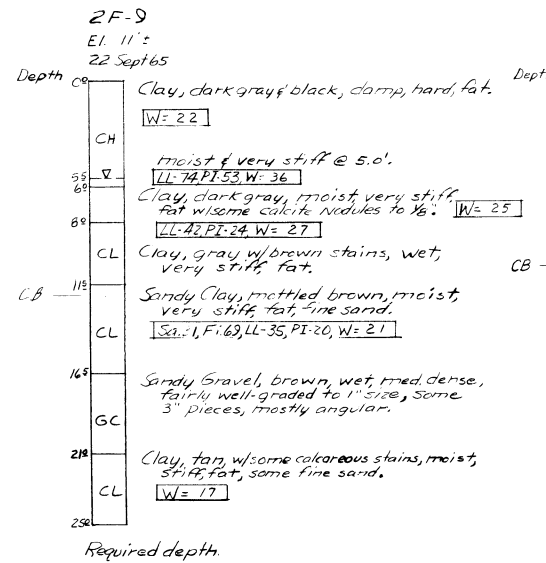 2F-9
El. 11'±
22 Sept 65
Depth
Dept
0.0
Clay, dark gray & black, damp, hard, fat.
W= 22
CH
moist & very stiff @ 5.0'.
5.5
LL-74, PI-53, W= 36
6.0
Clay, dark gray, moist, very stiff,
fat w/some calcite nodules to 1/8". W= 25
8.0
LL-42, PI-24, W= 27
CL
Clay, gray w/brown stains, wet,
very stiff, fat.
CB
11.5
CB
Sandy Clay, mottled brown, moist,
very stiff, fat, fine sand.
CL
Sa.:1, Fi:69, LL-35, PI-20, W= 21
16.5
Sandy Gravel, brown, wet, med. dense,
fairly well-graded to 1" size, some
3" pieces, mostly angular.
GC
21.0
Clay, tan, w/some calcareous stains, moist,
stiff, fat, some fine sand.
CL
W= 17
25.0
Required depth.